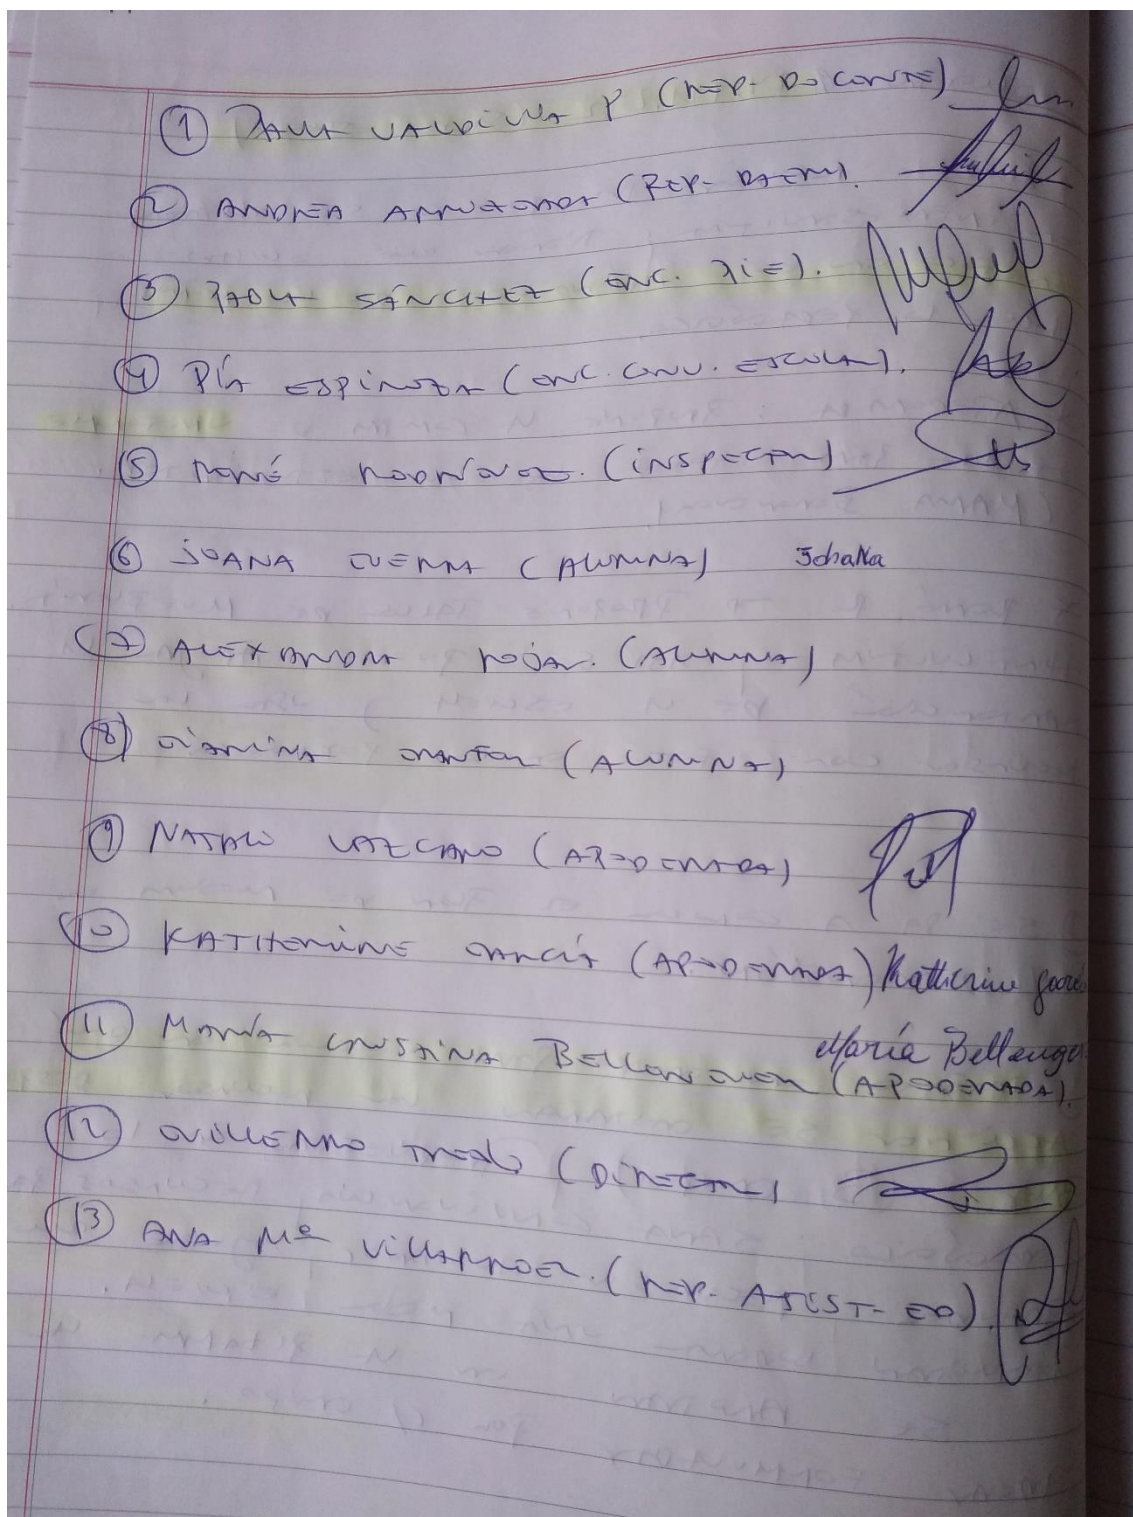 ① PAULA VALDIVIA P (REP. DOCENTE)
② ANDREA (REP. DAEM).
③ PAOLA SÁNCHEZ (ENC. PIE).
④ PÍA ESPINOZA (ENC. CONV. ESCOLAR).
⑤ RENÉ RODRÍGUEZ. (INSPECTOR)
⑥ JOANA GUERRA (ALUMNA)
⑦ ALEXANDRA ROJAS. (ALUMNA)
⑧ GIANINA (ALUMNA)
⑨ LAZCANO (APODERADA)
⑩ KATHERINE GARCÍA (APODERADA) Katherine García
⑪ MARÍA CRISTINA BELLENGUER María Bellenger
(APODERADA).
⑫ GUILLERMO (DIRECTOR)
⑬ ANA Mª VILLARROEL. (REP. ASIST. ED).